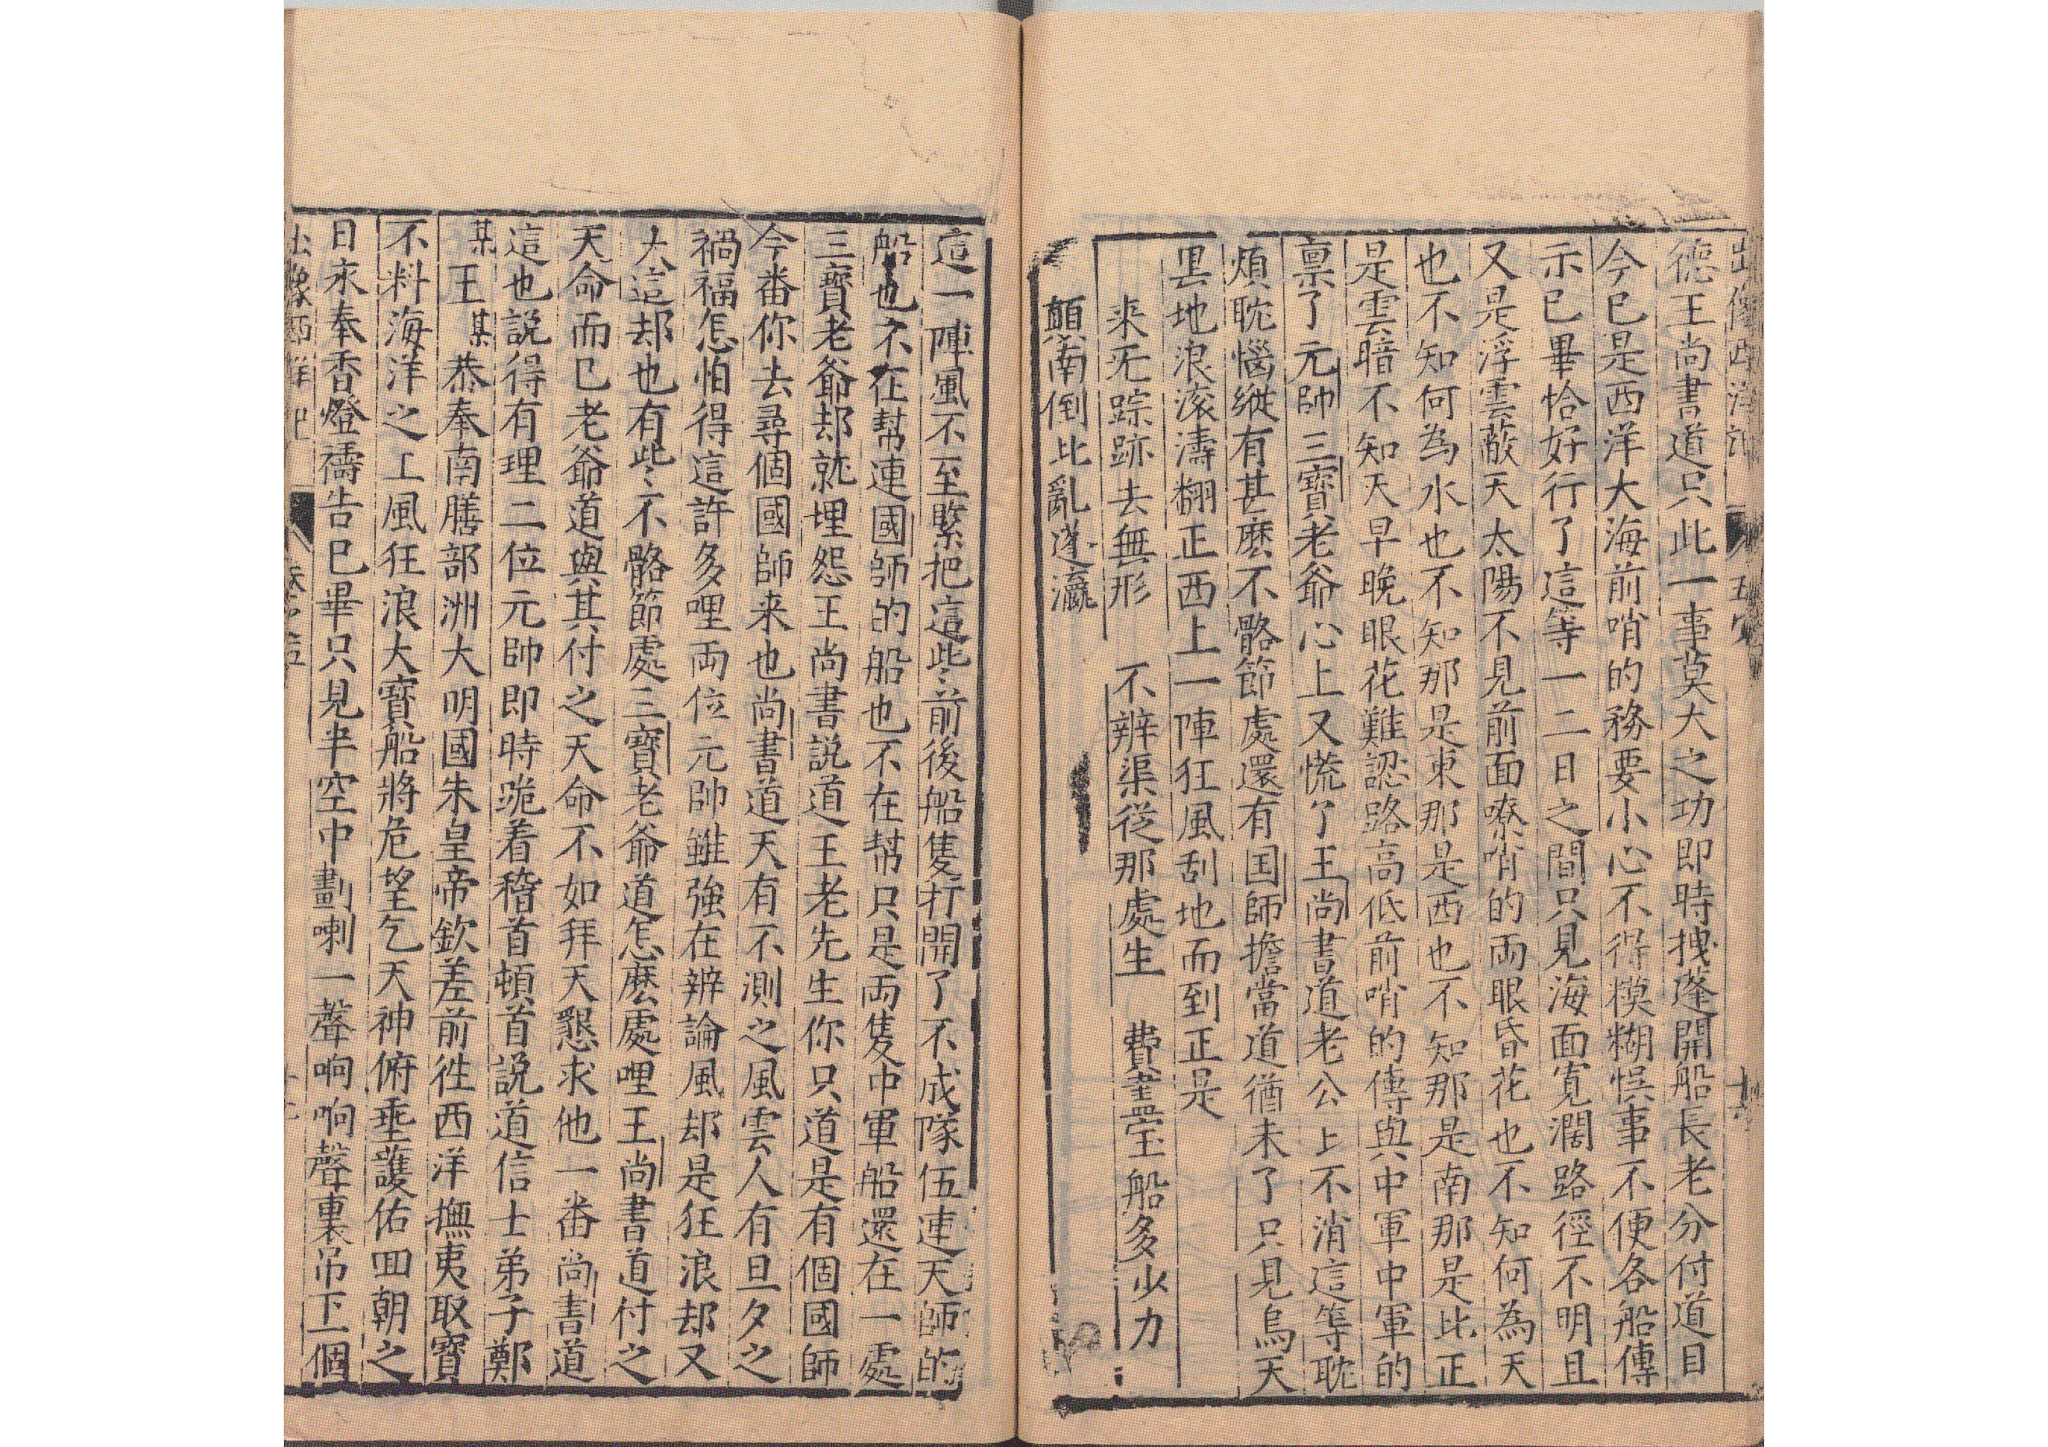 德王尚書道只此一事莫大之功即時拽蓬開船長老分付道目
今巳是西洋大海前哨的務要小心不得模糊悞事不便各船傳
示巳畢恰好行了這等一二日之間只見海面寛濶路徑不明且
又是浮雲蔽天太陽不見前面嘹哨的両眼昏花也不知何為天
也不知何為水也不知那是東那是西也不知那是南那是北正
是雲暗不知天早晚眼花難認路高低前哨的傳與中軍中軍的
禀了元帥三寳老爺心上又慌了王尚書道老公上不消這等耽
煩耽惱縱有甚麽不骼節處還有国師擔當道猶未了只見烏天
黒地浪滚濤翻正西上一陣狂風刮地而到正是
来旡踪跡去無形　不辨渠從那處生　費盡宝船多少力
顛南倒北亂蓬瀛
這一陣風不至緊把這些前後船隻打開了不成隊伍連天師的
船也不在幫連國師的船也不在幫只是両隻中軍船還在一處
三寳老爺却就埋怨王尚書説道王老先生你只道是有個國師
今番你去尋個國師来也尚書道天有不測之風雲人有旦夕之
禍福怎怕得這許多哩両位元帥雖強在辨論風却是狂浪却又
大這却也有些不骼節處三寳老爺道怎麽處哩王尚書道付之
天命而巳老爺道與其付之天命不如拜天懇求他一番尚書道
這也説得有理二位元帥即時跪着稽首頓首説道信士弟子鄭
某王某恭奉南膳部洲大明國朱皇帝欽差前徃西洋撫夷取寳
不料海洋之上風狂浪大寳船將危望乞天神俯垂護佑囬朝之
日永奉香燈禱告巳畢只見半空中劃喇一聲响响聲裏吊下一個